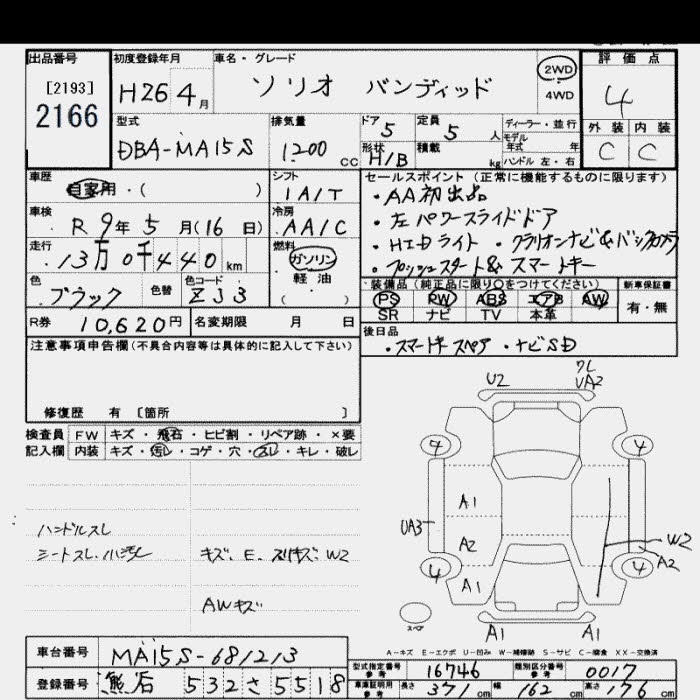 出品番号
[2193]
2166
初度登録年月
H26 4月
車名・グレード
ソリオ バンディッド
2WD
4WD
評価点
4
外装 内装
C C
型式
DBA-MA15S
排気量
1200 cc
ドア
5
定員
5 人
形状
H/B
積載
kg
ディーラー・並行
モデル
年式 年
ハンドル 左・右
車歴
自家用・( )
シフト
IA/T
車検
R 9年 5月(16日)
冷房
AA/C
走行
13万0千440 km
燃料
ガソリン
軽油
( )
色
ブラック
色替
色コード
ZJ3
R券
10,620円
名変期限 月 日
セールスポイント(正常に機能するものに限ります)
・AA初出品
・左パワースライドドア
・HIDライト ・クラリオンナビ&バックカメラ
・プッシュスタート& スマートキー
装備品(純正品に限り○をつけてください)
PS PW ABS エアB AW
SR ナビ TV 本革
新車保証書
有・無
後日品
・スマートキースペア ・ナビSD
注意事項申告欄(不具合内容等は具体的に記入して下さい)
修復歴 有 [箇所 ]
検査員
記入欄
FW キズ・飛石・ヒビ割・リペア跡・×要
内装 キズ・汚レ・コゲ・穴・スレ・キレ・破レ
ハンドルスレ
シートスレ・小汚レ
キズ、E、スリキズ、W2
AWキズ
U2
ワレ
UA2
4
4
A1
UA3
A2
W2
A2
4
4
A1
A1
A1
スペア
A-キズ E-エクボ U-凹み W-補修跡 S-サビ C-腐食 XX-交換済
車台番号
MA15S-681213
登録番号
熊谷 532 さ 5518
型式指定番号
参考
16746
類別区分番号
参考
0017
車庫証明用
参考
長さ 371cm
幅 162cm
高さ 176cm